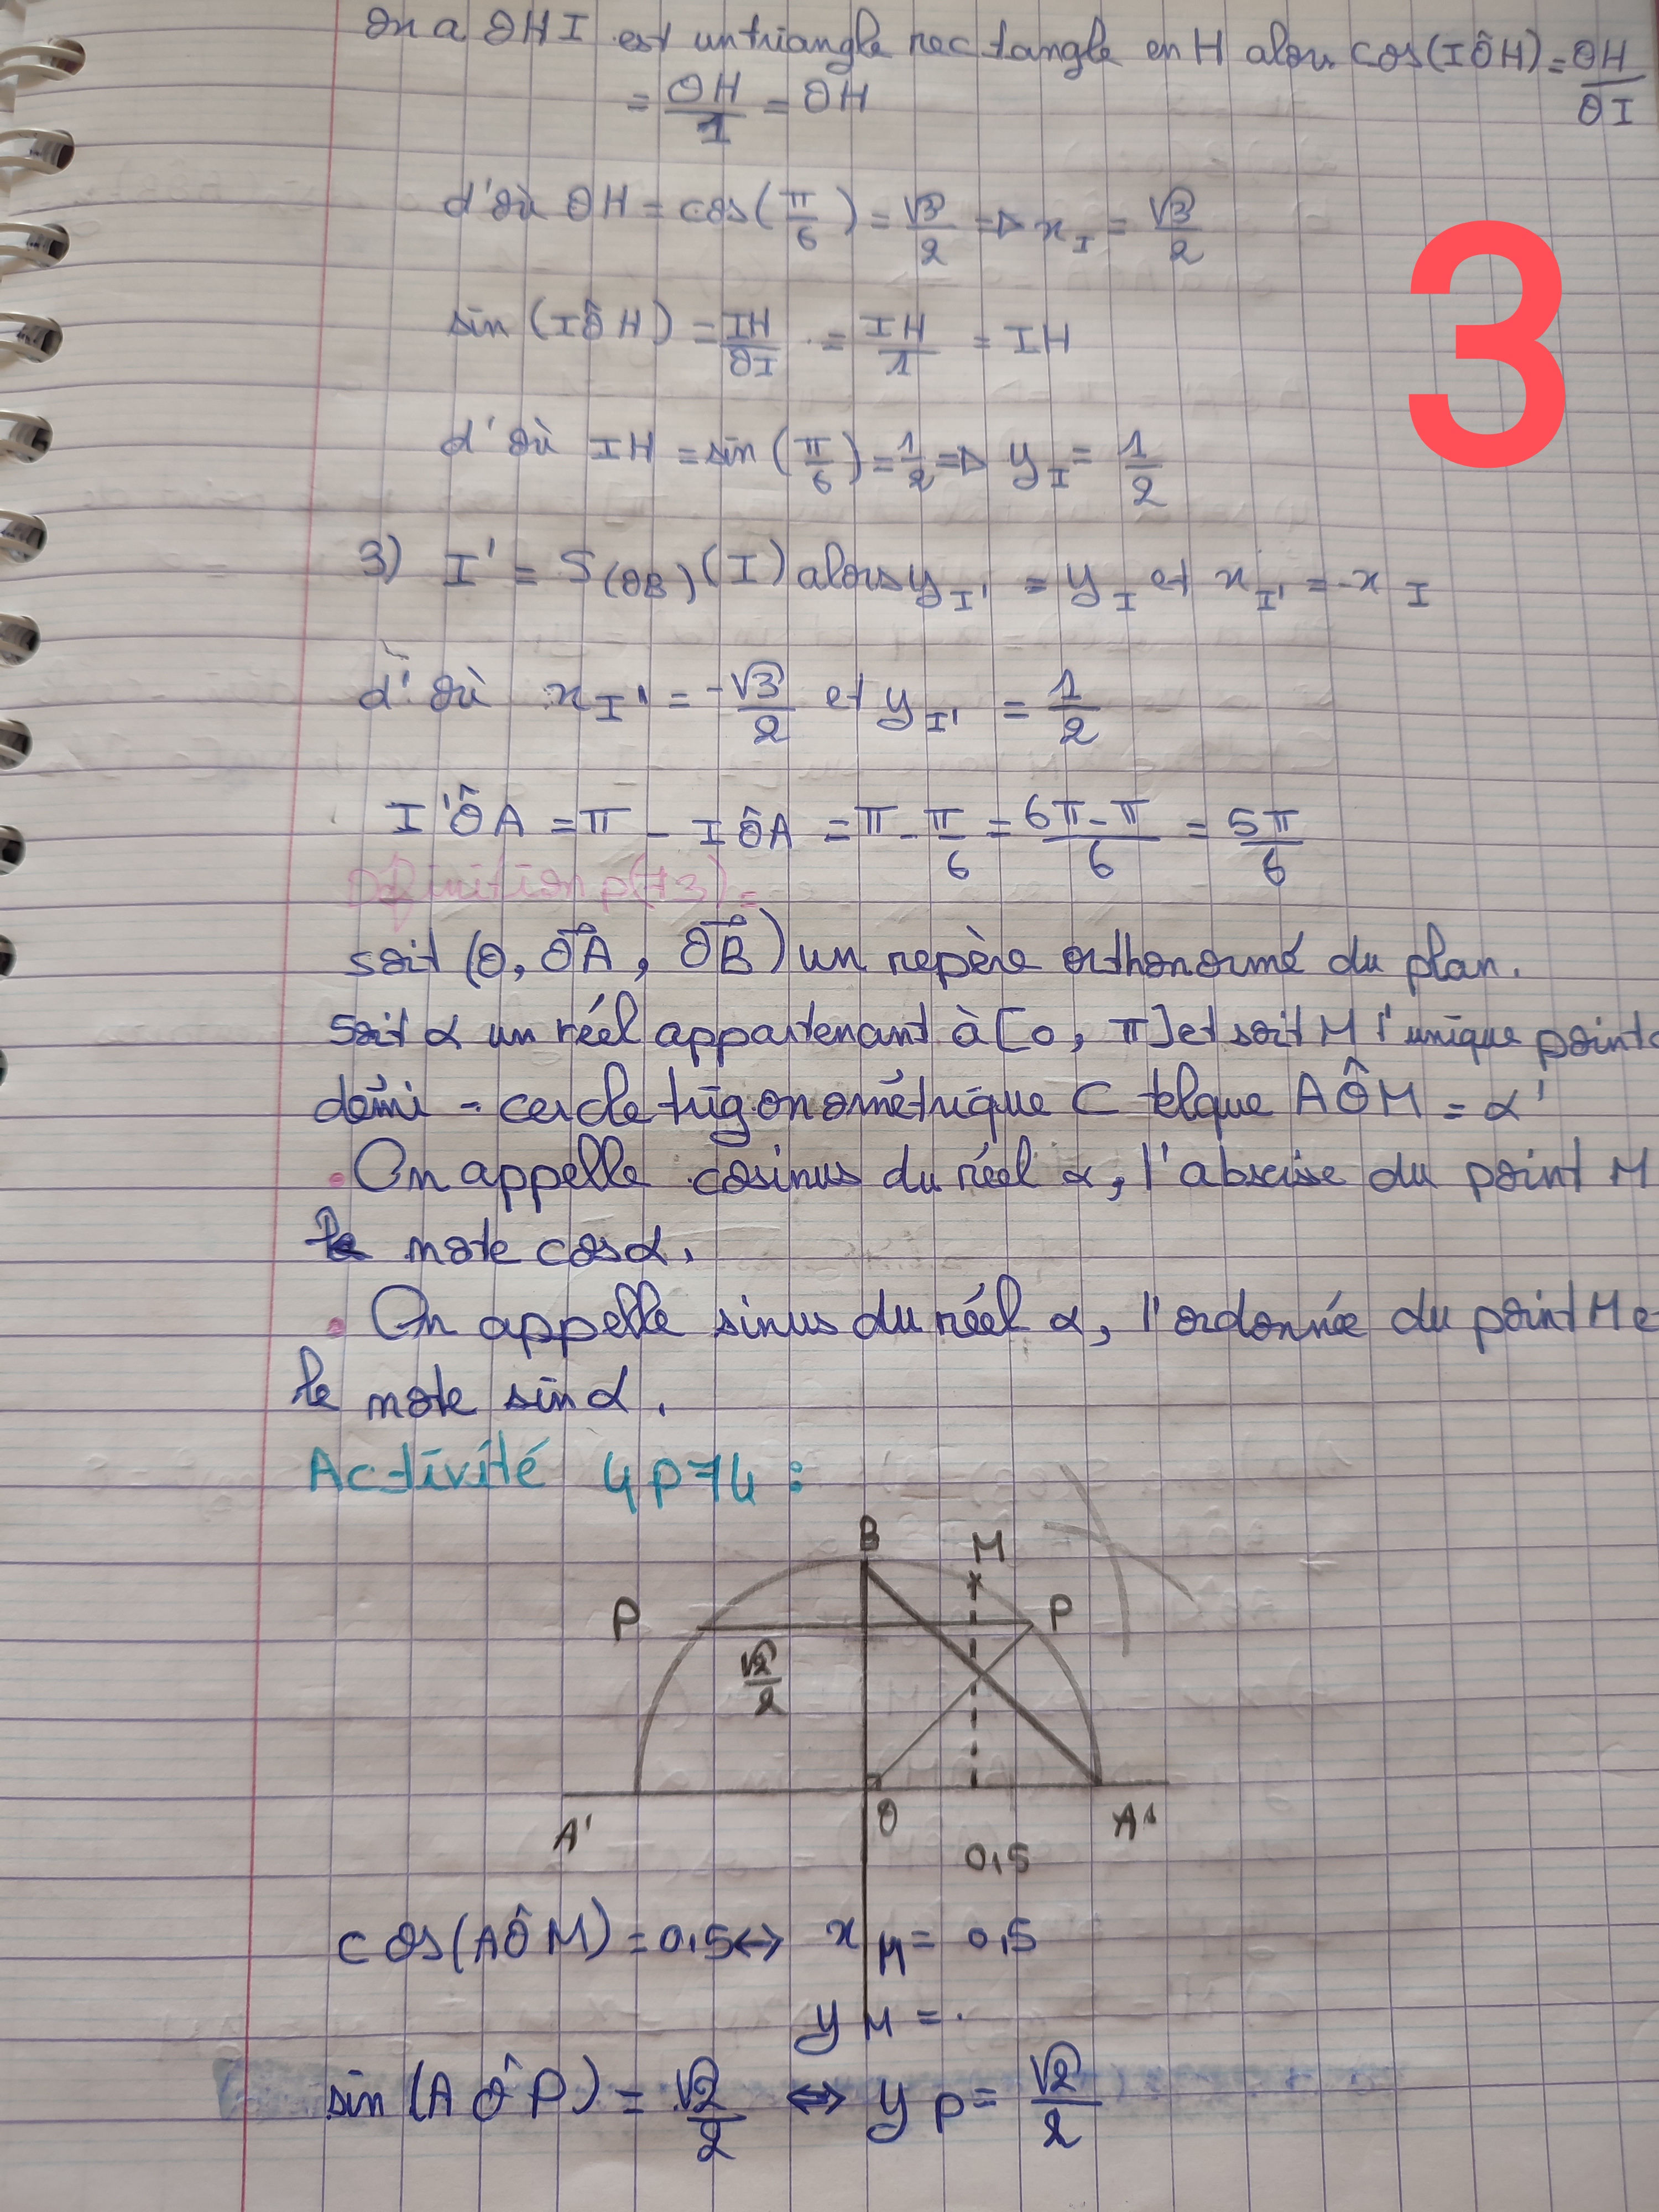 On a OHI est un triangle rectangle en H alors cos(IÔH) = OH/OI
= OH/1 = OH
d'où OH = cos(π/6) = √3/2 => x_I = √3/2
3
sin (IÔH) = IH/OI = IH/1 = IH
d'où IH = sin (π/6) = 1/2 => y_I = 1/2
3) I' = S(OB) (I) alors y_I' = y_I et x_I' = -x_I
d'où x_I' = -√3/2 et y_I' = 1/2
I'ÔA = π - IÔA = π - π/6 = 6π-π/6 = 5π/6
Définition p(73) =
soit (O, OA, OB) un repère orthonormé du plan.
Soit α un réel appartenant à [0, π] et soit M l'unique point
démi - cercle trigonométrique C telque AÔM = α'
• On appelle cosinus du réel α, l'abscisse du point M
le note cosα.
• On appelle sinus du réel α, l'ordonnée du point M e
le note sin α.
Activité 4p74 :
B
M
P
P
√2/2
O
A'
A
0,5
cos(AÔM) = 0,5 ↔ x_M = 0,5
y_M = .
sin (AÔP) = √2/2 ⇔ y_P = √2/2